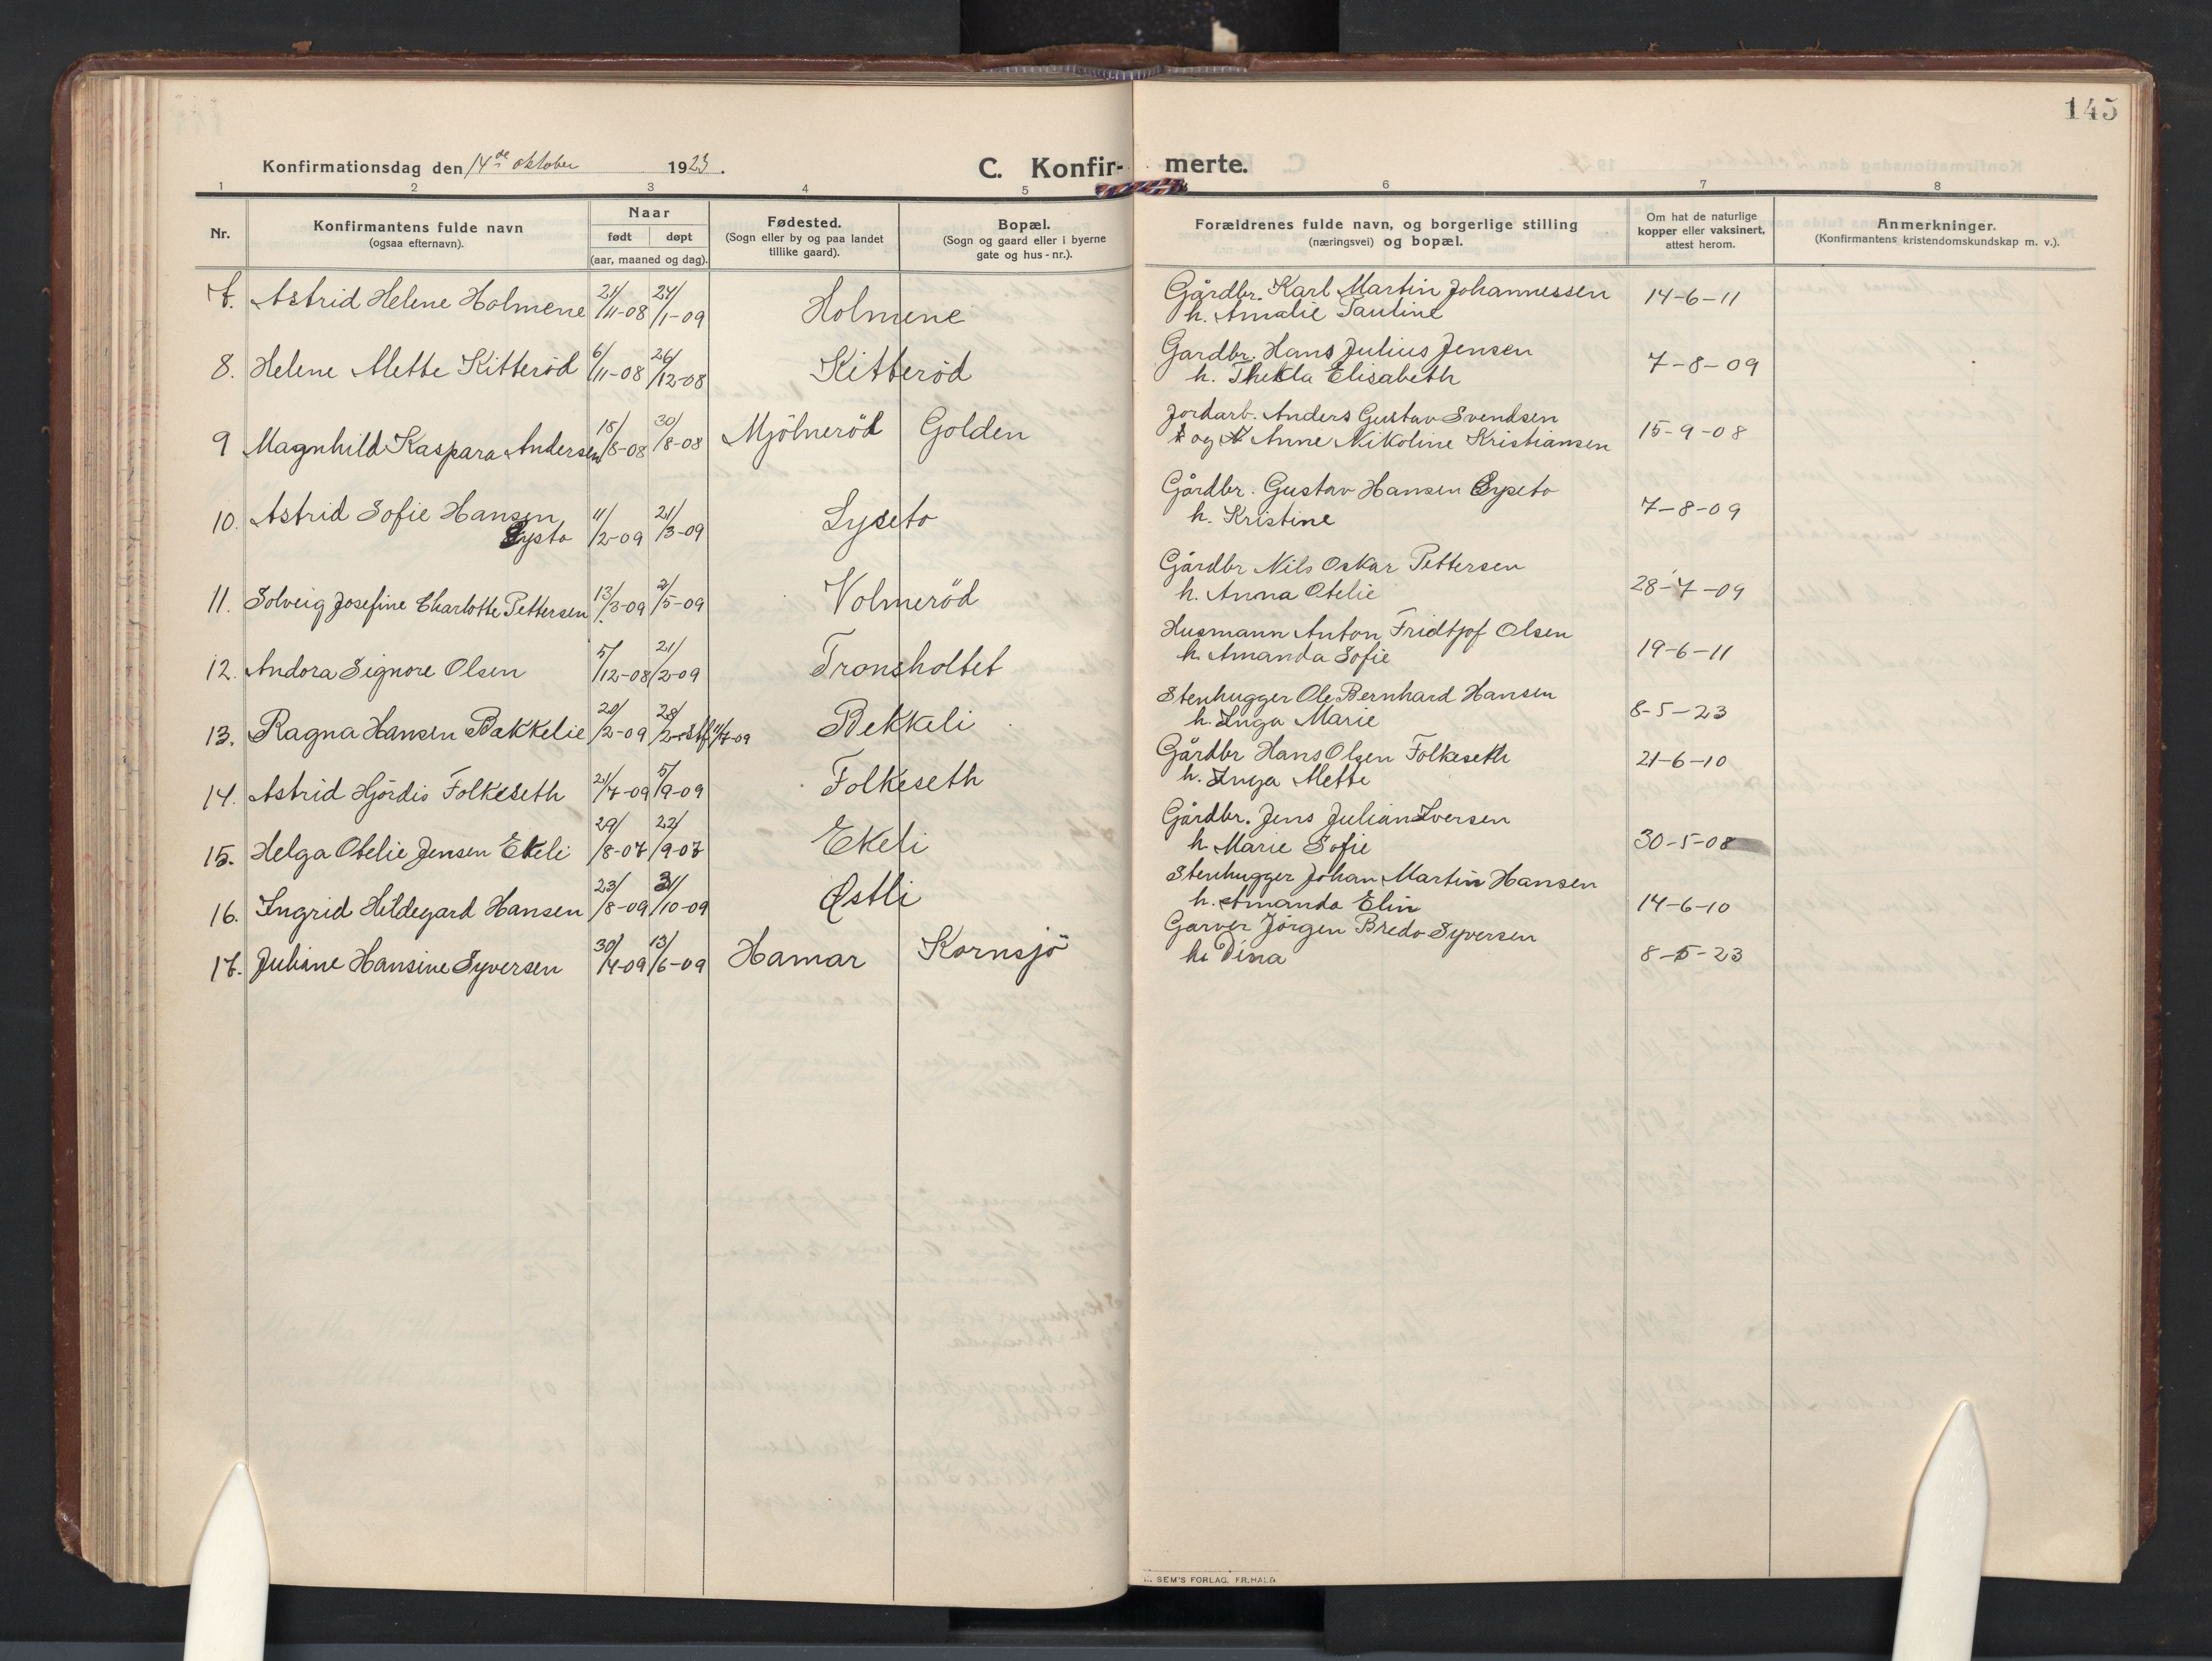 145
Konfirmationsdag den 14de oktober 1923.
C. Konfir- merte.
1 2 3 4 5 6 7 8
Nr.
Konfirmantens fulde navn
(ogsaa efternavn).
Naar
født døpt
(aar, maaned og dag).
Fødested.
(Sogn eller by og paa landet
tillike gaard).
Bopæl.
(Sogn og gaard eller i byerne
gate og hus-nr.).
Forældrenes fulde navn, og borgerlige stilling
(næringsvei) og bopæl.
Om hat de naturlige
kopper eller vaksinert,
attest herom.
Anmerkninger.
(Konfirmantens kristendomskundskap m. v.).
7. Astrid Helene Holmene 21/11-08 24/1-09 Holmene
Gårdbr. Karl Martin Johannessen
h. Amalie Pauline
14-6-11
8. Helene Mette Kitteröd 6/11-08 26/12-08 Kitteröd
Gardbr. Hans Julius Jensen
h. Thekla Elisabeth
7-8-09
9 Magnhild Kaspara Andersen /8-08 30/8-08 Mjölneröd Golden
Jordarb. Anders Gustav Svendsen
og Anne Nikoline Kristiansen
15-9-08
10. Astrid Sofie Hansen
Lysto
11/2-09 21/3-09 Lyseto
Gårdbr. Gustav Hansen Lyseto
h. Kristine
7-8-09
11. Solveig Josefine Charlotte Pettersen 13/3-09 2/5-09 Volmeröd
Gårdbr Nils Oskar Pettersen
h. Anna Otelie
28-7-09
12. Andora Signore Olsen 5/12-08 21/2-09 Tronsholtet
Husmann Anton Fridtjof Olsen
h. Amanda Sofie
19-6-11
13. Ragna Hansen Bakkelie 20/2-09 28/2- stf 11/7-09 Bekkeli
Stenhugger Ole Bernhard Hansen
h. Inga Marie
8-5-23
14. Astrid Hjördis Folkeseth 21/7-09 5/9-09 Folkeseth
Gårdbr Hans Olsen Folkeseth
h. Inga Mette
21-6-10
15. Helga Otelie Jensen Ekeli 29/8-07 22/9-07 Ekeli
Gårdbr. Jens Julian Iversen
h. Marie Sofie
30-5-08
16. Ingrid Hildegard Hansen 23/8-09 31/10-09 Østli
Stenhugger Johan Martin Hansen
h. Amanda Elin
14-6-10
17. Juliane Hansine Syversen 30/4-09 13/6-09 Hamar Kornsjö
Garver Jörgen Bredo Syversen
h. Dina
8-5-23
SEM'S FORLAG, FR.HALD